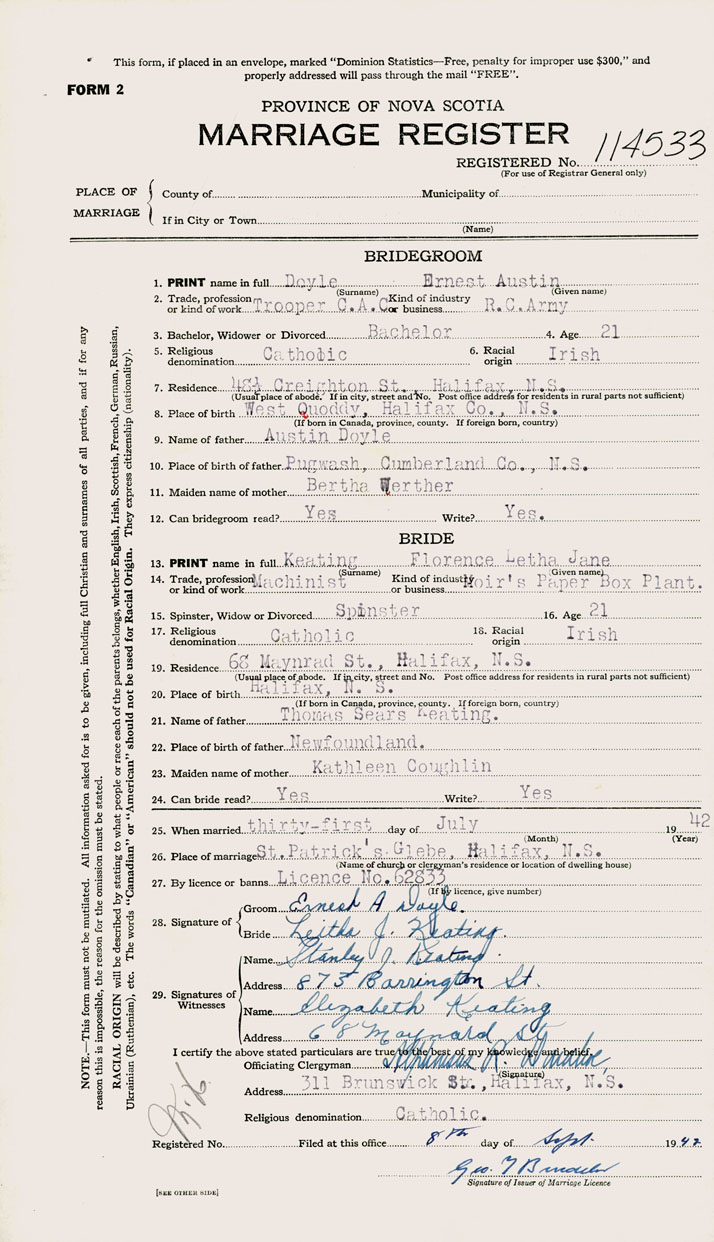 This form, if placed in an envelope, marked “Dominion Statistics—Free, penalty for improper use $300,” and
properly addressed will pass through the mail “FREE”.
FORM 2
PROVINCE OF NOVA SCOTIA
MARRIAGE REGISTER
REGISTERED No. 114533
(For use of Registrar General only)
PLACE OF MARRIAGE
County of Municipality of
If in City or Town
(Name)
BRIDEGROOM
1. PRINT name in full Doyle Ernest Austin
(Surname) (Given name)
2. Trade, profession or kind of work Trooper C.A.C. Kind of industry or business R.C.Army
3. Bachelor, Widower or Divorced Bachelor 4. Age 21
5. Religious denomination Catholic 6. Racial origin Irish
7. Residence 48½ Creighton St., Halifax, N.S.
(Usual place of abode. If in city, street and No. Post office address for residents in rural parts not sufficient)
8. Place of birth West Quoddy, Halifax Co., N.S.
(If born in Canada, province, county. If foreign born, country)
9. Name of father Austin Doyle
10. Place of birth of father Pugwash, Cumberland Co., N.S.
11. Maiden name of mother Bertha Werther
12. Can bridegroom read? Yes Write? Yes.
BRIDE
13. PRINT name in full Keating Florence Letha Jane
(Surname) (Given name)
14. Trade, profession or kind of work Machinist Kind of industry or business Moir's Paper Box Plant.
15. Spinster, Widow or Divorced Spinster 16. Age 21
17. Religious denomination Catholic 18. Racial origin Irish
19. Residence 68 Maynrad St., Halifax, N.S.
(Usual place of abode. If in city, street and No. Post office address for residents in rural parts not sufficient)
20. Place of birth Halifax, N. S.
(If born in Canada, province, county. If foreign born, country)
21. Name of father Thomas Sears Keating.
22. Place of birth of father Newfoundland.
23. Maiden name of mother Kathleen Coughlin
24. Can bride read? Yes Write? Yes
25. When married thirty-first day of July 1942
(Month) (Year)
26. Place of marriage St. Patrick's Glebe, Halifax, N.S.
(Name of church or clergyman's residence or location of dwelling house)
27. By licence or banns Licence No. 62833
(If by licence, give number)
28. Signature of
Groom Ernest A Doyle.
Bride Leitha J. Keating.
29. Signatures of Witnesses
Name Stanley J. Keating
Address 873 Barrington St.
Name Elizabeth Keating
Address 68 Maynard St
I certify the above stated particulars are true to the best of my knowledge and belief.
Officiating Clergyman
(Signature)
Address 311 Brunswick St., Halifax, N.S.
Religious denomination Catholic.
Registered No. Filed at this office 8th day of Sept. 1942
Signature of Issuer of Marriage Licence
[SEE OTHER SIDE]
NOTE.—This form must not be mutilated. All information asked for is to be given, including full Christian and surnames of all parties, and if for any
reason this is impossible, the reason for the omission must be stated.
RACIAL ORIGIN will be described by stating to what people or race each of the parents belongs, whether English, Irish, Scottish, French, German, Russian,
Ukrainian (Ruthenian), etc. The words “Canadian” or “American” should not be used for Racial Origin. They express citizenship (nationality).